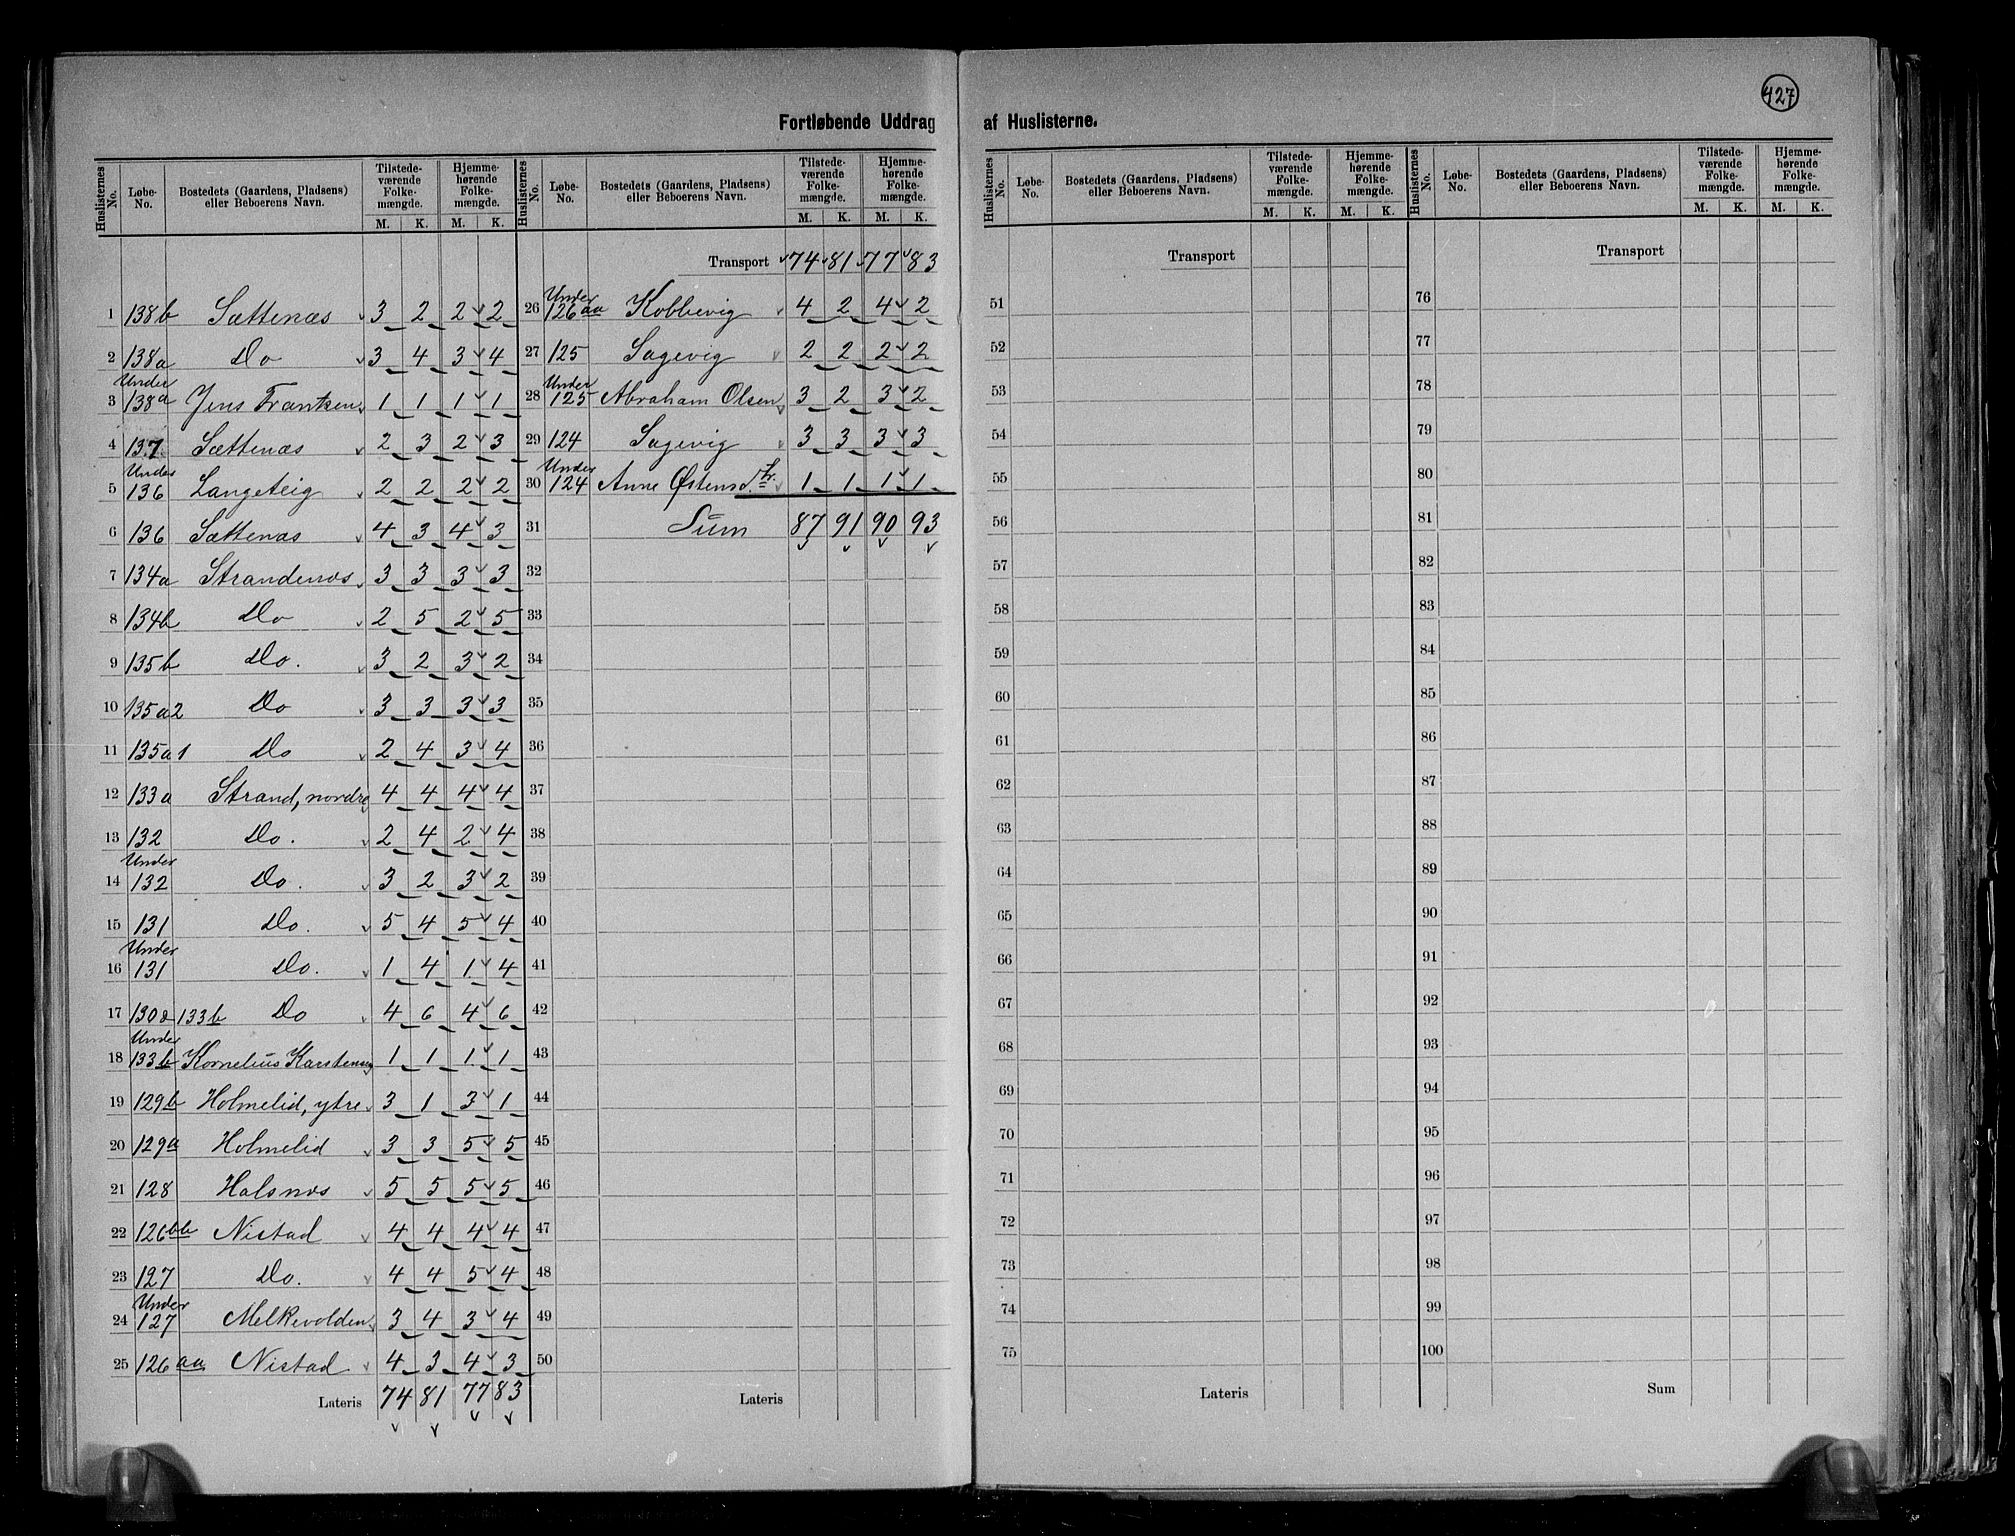 427
Fortløbende Uddrag af Huslisterne.
Huslisternes No. | Løbe-No. | Bostedets (Gaardens, Pladsens) eller Beboerens Navn. | Tilstedeværende Folkemængde. M. K. | Hjemmehørende Folkemængde. M. K.
1 138b Sættenæs 3 2 2 2
2 138a Do 3 4 3 4
3 Under 138a Jens Frantsen 1 1 1 1
4 137. Sættenæs 2 3 2 3
5 Under 136 Langeteig 2 2 2 2
6 136 Sættenæs 4 3 4 3
7 134a Strandenæs 3 3 3 3
8 134b Do 2 5 2 5
9 135b Do. 3 2 3 2
10 135a2 Do 3 3 3 3
11 135a1 Do 2 4 3 4
12 133a Strand, nordre 4 4 4 4
13 132 Do. 2 4 2 4
14 Under 132 Do. 3 2 3 2
15 131 Do. 5 4 5 4
16 Under 131 Do. 1 4 1 4
17 130 & 133b Do 4 6 4 6
18 Under 133b Kornelius Karstensen 1 1 1 1
19 129b Holmelid, ytre 3 1 3 1
20 129a Holmelid 3 3 5 5
21 128 Halsnæs 5 5 5 5
22 126bb Nistad 4 4 4 4
23 127 Do. 4 4 5 4
24 Under 127 Melkevolden 3 4 3 4
25 126aa Nistad 4 3 4 3
Lateris 74 81 77 83
Huslisternes No. | Løbe-No. | Bostedets (Gaardens, Pladsens) eller Beboerens Navn. | Tilstedeværende Folkemængde. M. K. | Hjemmehørende Folkemængde. M. K.
Transport 74 81 77 83
26 Under 126aa Kobbevig 4 2 4 2
27 125 Sagevig 2 2 2 2
28 Under 125 Abraham Olsen 3 2 3 2
29 124 Sagevig 3 3 3 3
30 Under 124 Anne Østensd. 1 1 1 1
31 Sum 87 91 90 93
32
33
34
35
36
37
38
39
40
41
42
43
44
45
46
47
48
49
50
Lateris
Huslisternes No. | Løbe-No. | Bostedets (Gaardens, Pladsens) eller Beboerens Navn. | Tilstedeværende Folkemængde. M. K. | Hjemmehørende Folkemængde. M. K.
Transport
51
52
53
54
55
56
57
58
59
60
61
62
63
64
65
66
67
68
69
70
71
72
73
74
75
Lateris
Huslisternes No. | Løbe-No. | Bostedets (Gaardens, Pladsens) eller Beboerens Navn. | Tilstedeværende Folkemængde. M. K. | Hjemmehørende Folkemængde. M. K.
Transport
76
77
78
79
80
81
82
83
84
85
86
87
88
89
90
91
92
93
94
95
96
97
98
99
100
Sum